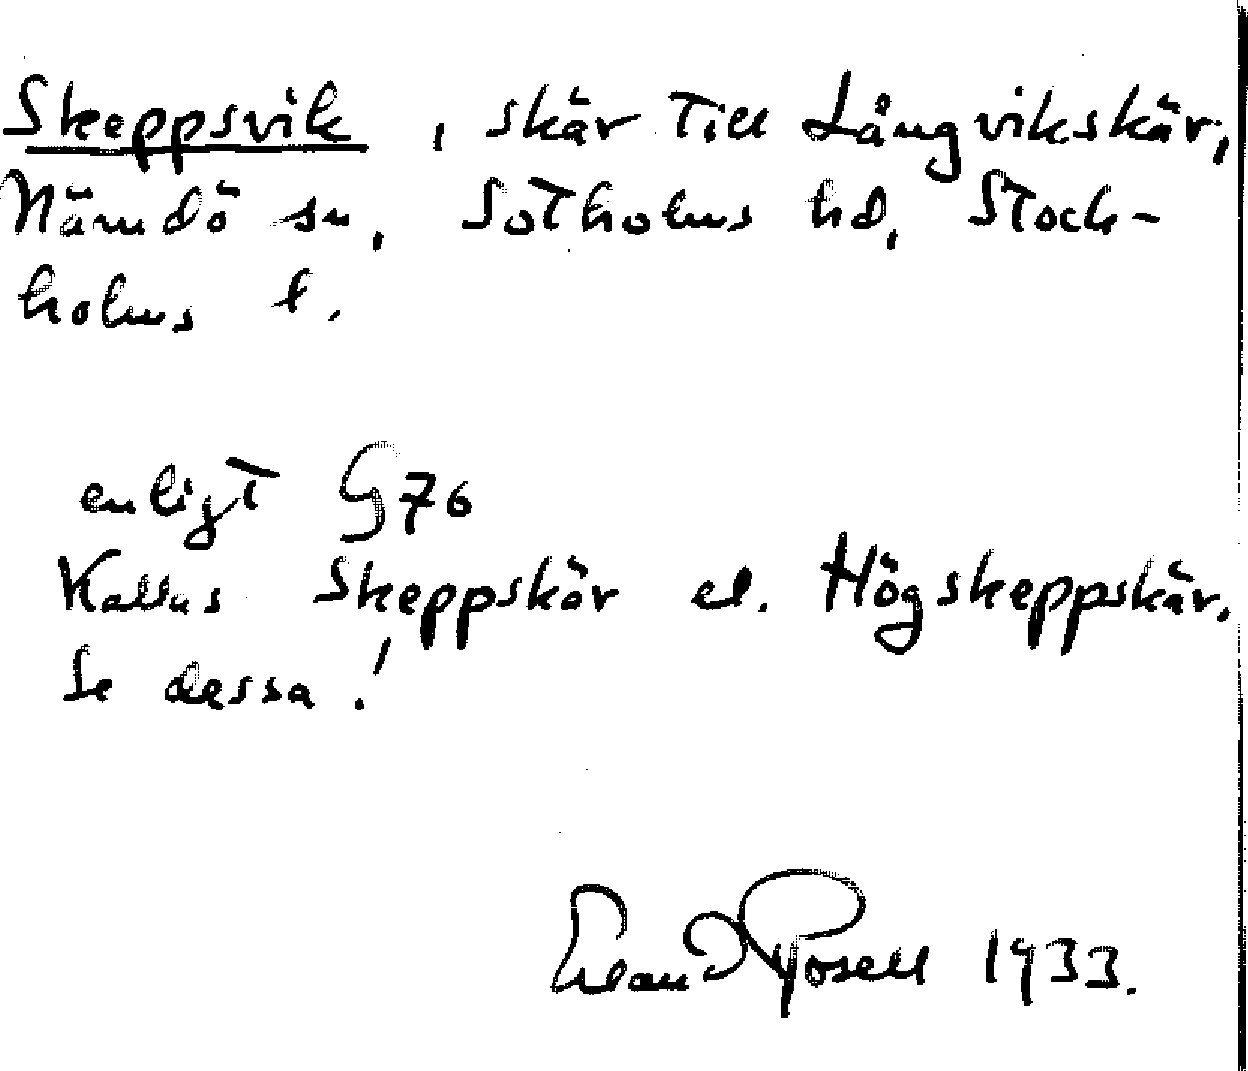 Skeppsvik, skär till Långvikskär,
Nämdö sn, Sotholms hd, Stock-
holms l.
enligt G76
Kallas Skeppskär el. Högskeppskär.
Se dessa!
Erland Rosell 1933.